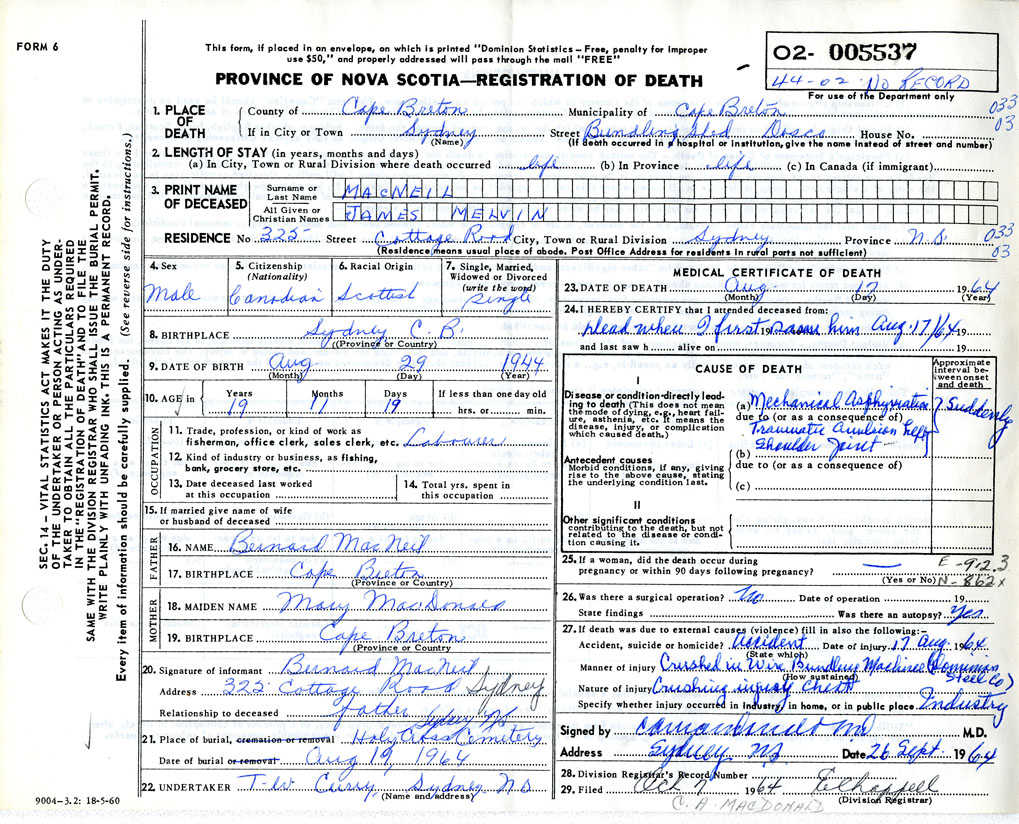 FORM 6
This form, if placed in an envelope, on which is printed "Dominion Statistics – Free, penalty for improper
use $50," and properly addressed will pass through the mail "FREE"
PROVINCE OF NOVA SCOTIA—REGISTRATION OF DEATH
02- 005537
44-02 No RECORD
For use of the Department only
SEC. 14 – VITAL STATISTICS ACT MAKES IT THE DUTY
OF THE UNDERTAKER OR PERSON ACTING AS UNDER-
TAKER TO OBTAIN ALL THE PARTICULARS REQUIRED
IN THE "REGISTRATION OF DEATH" AND TO FILE THE
SAME WITH THE DIVISION REGISTRAR WHO SHALL ISSUE THE BURIAL PERMIT.
WRITE PLAINLY WITH UNFADING INK. THIS IS A PERMANENT RECORD.
Every item of information should be carefully supplied. (See reverse side for instructions.)
1. PLACE OF DEATH
County of Cape Breton Municipality of Cape Breton 033
03
If in City or Town Sydney Street Bundling Shed Dosco House No.
(Name) (If death occurred in hospital or institution, give the name instead of street and number)
2. LENGTH OF STAY (in years, months and days)
(a) In City, Town or Rural Division where death occurred life (b) In Province life (c) In Canada (if immigrant)
3. PRINT NAME OF DECEASED
Surname or Last Name MACNEIL
All Given or Christian Names JAMES MELVIN
RESIDENCE No 325 Street Cottage Road City, Town or Rural Division Sydney Province N.S 033
03
(Residence means usual place of abode. Post Office Address for residents in rural parts not sufficient)
4. Sex
Male
5. Citizenship (Nationality)
Canadian
6. Racial Origin
Scottish
7. Single, Married, Widowed or Divorced (write the word)
Single
8. BIRTHPLACE Sydney C. B.
(Province or Country)
9. DATE OF BIRTH Aug 29 1944
(Month) (Day) (Year)
10. AGE in Years Months Days If less than one day old
19 11 19 hrs. or min.
OCCUPATION
11. Trade, profession, or kind of work as
fisherman, office clerk, sales clerk, etc. Labourer
12. Kind of industry or business, as fishing,
bank, grocery store, etc.
13. Date deceased last worked
at this occupation
14. Total yrs. spent in
this occupation
15. If married give name of wife
or husband of deceased
FATHER
16. NAME Bernard MacNeil
17. BIRTHPLACE Cape Breton
(Province or Country)
MOTHER
18. MAIDEN NAME Mary MacDonald
19. BIRTHPLACE Cape Breton
(Province or Country)
20. Signature of informant Bernard MacNeil
Address 325 Cottage Road Sydney
Relationship to deceased father
Sydney NS
21. Place of burial, cremation or removal Holy Cross Cemetery
Date of burial or removal Aug 19, 1964
22. UNDERTAKER T-W Curry Sydney N S
(Name and address)
9004—3.2: 18-5-60
MEDICAL CERTIFICATE OF DEATH
23. DATE OF DEATH Aug 17 1964
(Month) (Day) (Year)
24. I HEREBY CERTIFY that I attended deceased from:
Dead when I first saw him Aug. 17/64 19
and last saw h alive on 19
CAUSE OF DEATH
Approximate interval between onset and death
I
Disease or condition directly leading to death (This does not mean the mode of dying, e.g., heart failure, asthenia, etc. It means the disease, injury, or complication which caused death.)
(a) Mechanical Asphyxiation Suddenly
due to (or as a consequence of)
Traumatic Avulsion left
Shoulder Joint
Antecedent causes
Morbid conditions, if any, giving rise to the above cause, stating the underlying condition last.
(b)
due to (or as a consequence of)
(c)
II
Other significant conditions
contributing to the death, but not related to the disease or condition causing it.
25. If a woman, did the death occur during
pregnancy or within 90 days following pregnancy? —
(Yes or No)
E-912.3
N-862x
26. Was there a surgical operation? No Date of operation 19
State findings Was there an autopsy? Yes
27. If death was due to external causes (violence) fill in also the following:—
Accident, suicide or homicide? Accident Date of injury 17 Aug. 1964
(State which)
Manner of injury Crushed in Wire Bundling Machine (Dominion
Steel Co)
(How sustained)
Nature of injury Crushing injury Chest
Specify whether injury occurred in industry, in home, or in public place. Industry
Signed by M.D.
Address Sydney NS Date 26 Sept. 1964
28. Division Registrar's Record Number
29. Filed Oct 7 1964 E Chappell
(Division Registrar)
C. A. MACDONALD